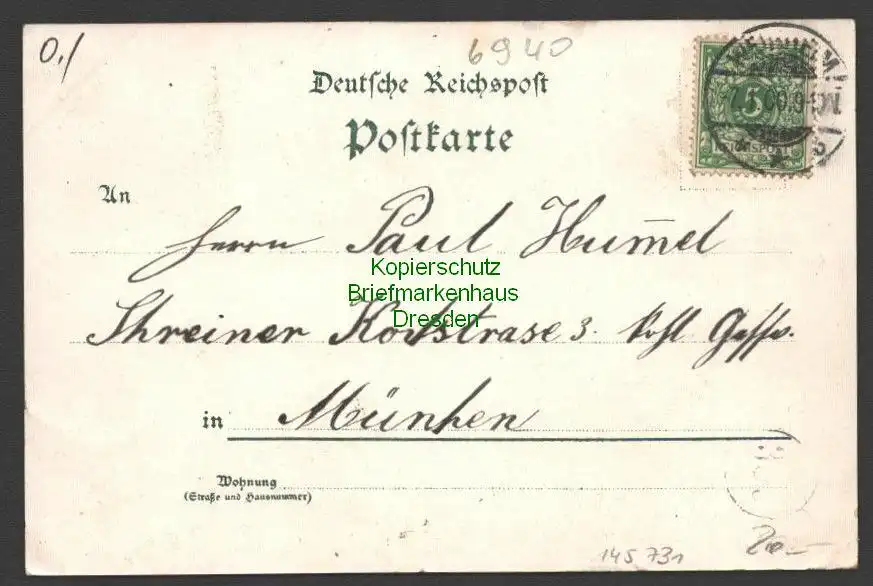 0./
6940
Deutsche Reichspost
Postkarte
5
REICHSPOST
An
Herrn Paul Hummel
Kopierschutz
Briefmarkenhaus
Dresden
Shreiner Kochstrase 3.
in München
Wohnung
(Straße und Hausnummer)
145731